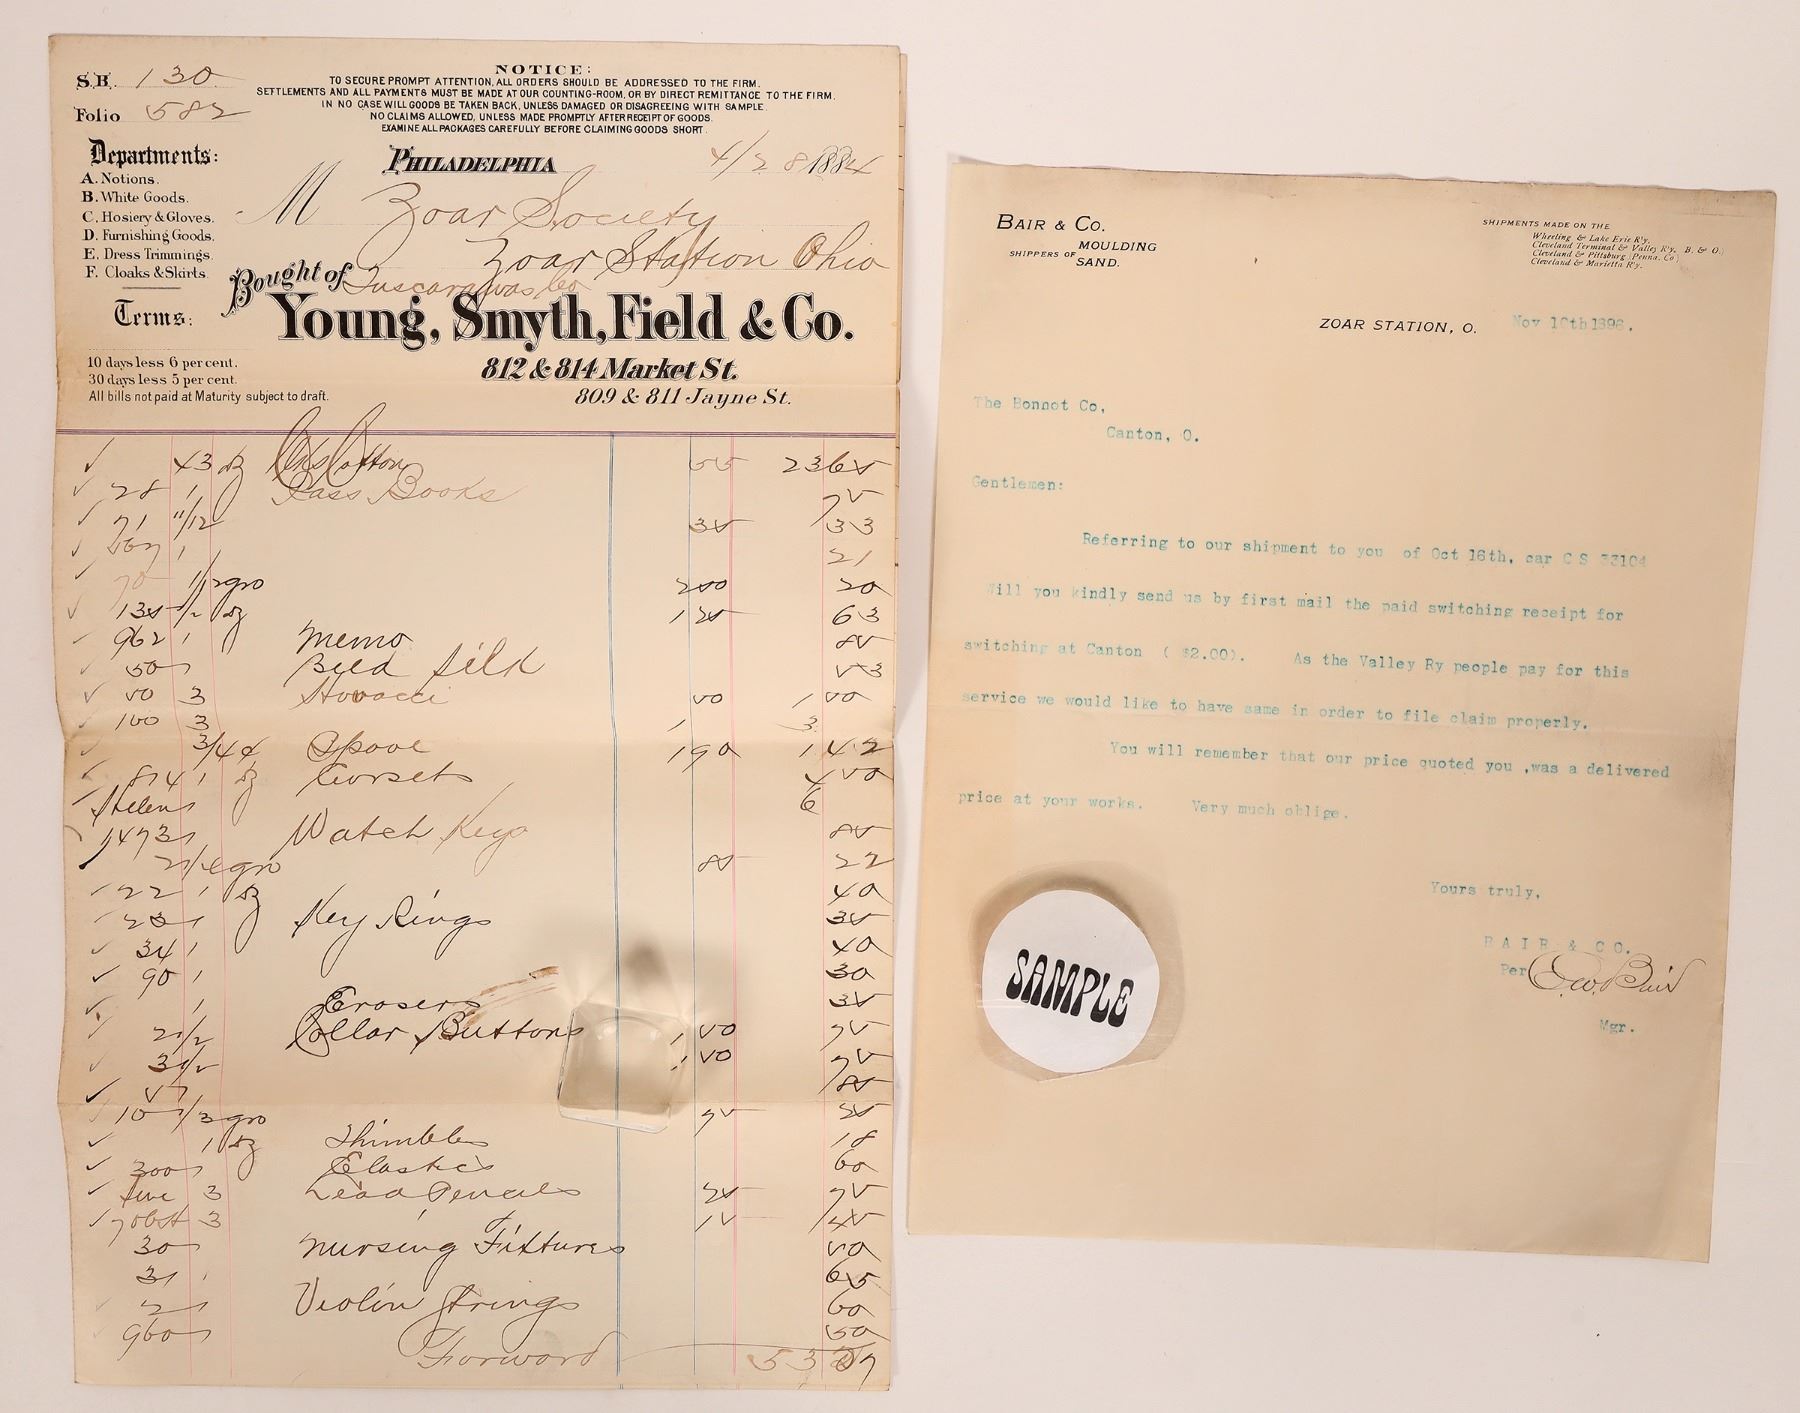 S.B. 130
Folio 582
NOTICE:
TO SECURE PROMPT ATTENTION, ALL ORDERS SHOULD BE ADDRESSED TO THE FIRM.
SETTLEMENTS AND ALL PAYMENTS MUST BE MADE AT OUR COUNTING-ROOM, OR BY DIRECT REMITTANCE TO THE FIRM.
IN NO CASE WILL GOODS BE TAKEN BACK, UNLESS DAMAGED OR DISAGREEING WITH SAMPLE.
NO CLAIMS ALLOWED, UNLESS MADE PROMPTLY AFTER RECEIPT OF GOODS.
EXAMINE ALL PACKAGES CAREFULLY BEFORE CLAIMING GOODS SHORT.
Departments:
A. Notions.
B. White Goods.
C. Hosiery & Gloves.
D. Furnishing Goods.
E. Dress Trimmings.
F. Cloaks & Skirts.
PHILADELPHIA 4/28 1884
M Zoar Society
Zoar Station Ohio
Tuscarawas Co
Bought of
Young, Smyth, Field & Co.
812 & 814 Market St.
809 & 811 Jayne St.
Terms:
10 days less 6 per cent.
30 days less 5 per cent.
All bills not paid at Maturity subject to draft.
43 dz Cotton 55 2365
28 1 Pass Books 75
71 11/12 35 33
1 21
70 1/12 gro 200 20
135 1/2 dz 125 63
962 1 Memo 85
50 1 Silk 53
50 3 50 1 50
100 3 1 3
3/4 Spool 190 1 42
814 1 dz Corsets 4 50
6
1473 Watch Keys 85
gro 85 22
22 1 dz 40
23 1 Key Rings 35
34 1 40
90 1 30
1 Erasers 35
2 1/2 Collar Buttons 1 50 75
3 1/2 1 50 75
85
10 1/3 gro 75 25
1 dz Thimbles 18
300 1 Elastics 60
3 Lead Pencils 25 75
3 15 45
30 1 Nursing Fixtures 50
31 1 65
2 1 Violin Strings 60
960 1 50
Forward 53 07
BAIR & CO.
SHIPPERS OF MOULDING SAND.
SHIPMENTS MADE ON THE
Wheeling & Lake Erie R'y.
Cleveland Terminal & Valley R'y. (B. & O.)
Cleveland & Pittsburg (Penna. Co)
Cleveland & Marietta R'y.
ZOAR STATION, O. Nov 10th 1896.
The Bonnot Co,
Canton, O.
Gentlemen:
Referring to our shipment to you of Oct 16th, car C S 33104
Will you kindly send us by first mail the paid switching receipt for
switching at Canton ( $2.00). As the Valley Ry people pay for this
service we would like to have same in order to file claim properly.
You will remember that our price quoted you ,was a delivered
price at your works. Very much oblige.
Yours truly,
BAIR & CO.
Per Bair
Mgr.
SAMPLE